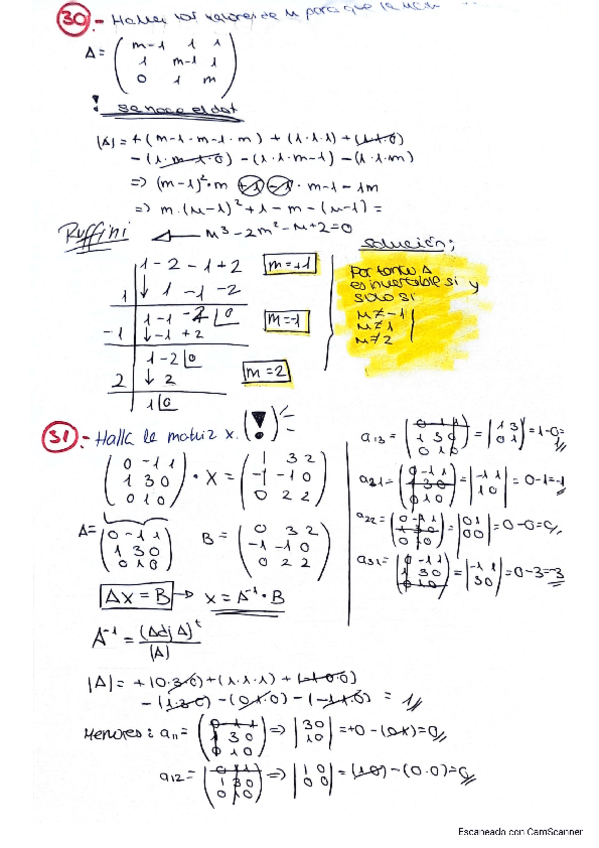 30.- Hallar los valores de m para que la
A = ( m-1 1 1
1 m-1 1
0 1 m )
! se hace el det
|A| = + (m-1 · m-1 · m) + (1·1·1) + (1·1·0)
- (1·m-1·0) - (1·1·m-1) - (1·1·m)
=> (m-1)²·m +1 -1 · m-1 - 1m
=> m·(m-1)² + 1 - m - (m-1) =
Ruffini ← m³ - 2m² - m + 2 = 0
1 - 2 - 1 + 2 m = +1
1 ↓ 1 - 1 - 2
1 - 1 - 2 0 m = -1
-1 ↓ - 1 + 2
1 - 2 0
2 ↓ 2 m = 2
1 0
Solución;
Por tanto A
es invertible si y
solo si
m ≠ -1
m ≠ 1
m ≠ 2
31.- Halla la matriz x. (!)
( 0 -1 1
1 3 0
0 1 0 ) · X = ( 1 3 2
-1 -1 0
0 2 2 )
A = ( 0 -1 1
1 3 0
0 1 0 ) B = ( 0 3 2
-1 -1 0
0 2 2 )
AX = B → X = A⁻¹ · B
A⁻¹ = (Adj A)ᵗ
(A)
|A| = + (0·3·0) + (1·1·1) + (-1·0·0)
- (1·3·0) - (0·1·0) - (-1·1·0) = 1
Menores: a11 = ( 0 -1 1
1 3 0
0 1 0 ) => | 3 0
1 0 | = +0 - (0·1) = 0
a12 = ( 0 -1 1
1 3 0
0 1 0 ) => | 1 0
0 0 | = (1·0) - (0·0) = 0
a13 = ( 0 -1 1
1 3 0
0 1 0 ) = | 1 3
0 1 | = 1-0 =
a21 = ( 0 -1 1
1 3 0
0 1 0 ) = | -1 1
1 0 | = 0-1 = -1
a22 = ( 0 -1 1
1 3 0
0 1 0 ) = | 0 1
0 0 | = 0-0 = 0
a31 = ( 0 -1 1
1 3 0
0 1 0 ) = | -1 1
3 0 | = 0-3 = -3
Escaneado con CamScanner